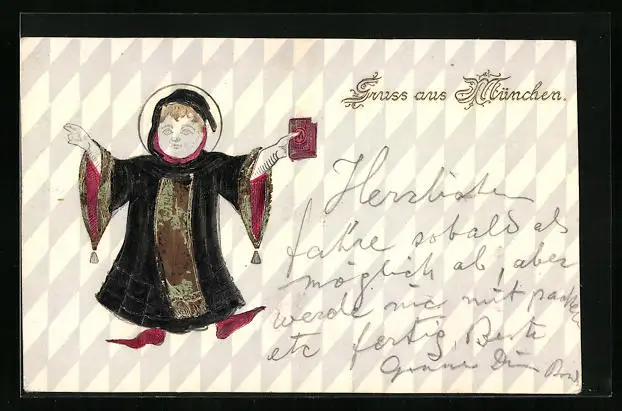 Gruss aus München.
Herzlichen
fahre sobald als
möglich ab, aber
werde nie mit packen
etc fertig, Beste
Dein